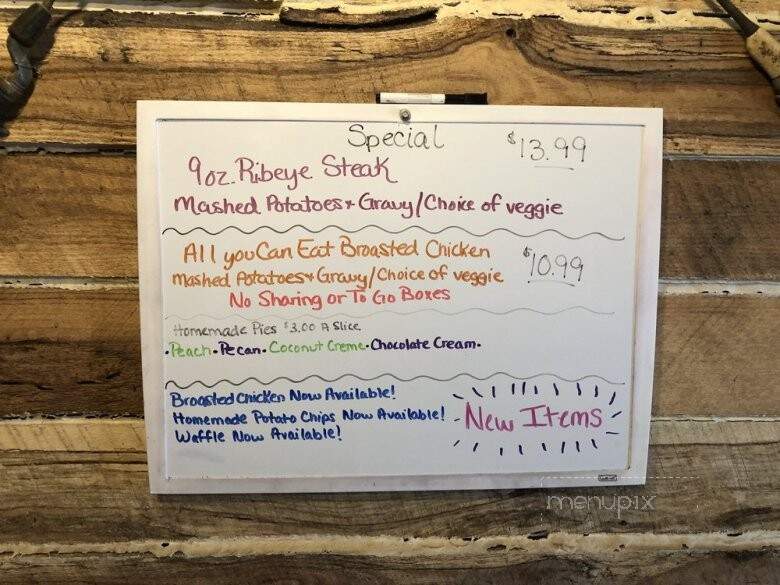 Special
$13.99
9oz. Ribeye Steak
Mashed Potatoes + Gravy/Choice of veggie
All you Can Eat Broasted Chicken
$10.99
Mashed Potatoes + Gravy/Choice of veggie
No Sharing or To Go Boxes
Homemade Pies $3.00 A Slice
•Peach•Pecan•Coconut Creme•Chocolate Cream•
Broasted Chicken Now Available!
Homemade Potato Chips Now Available!
Waffle Now Available!
New Items
menupix